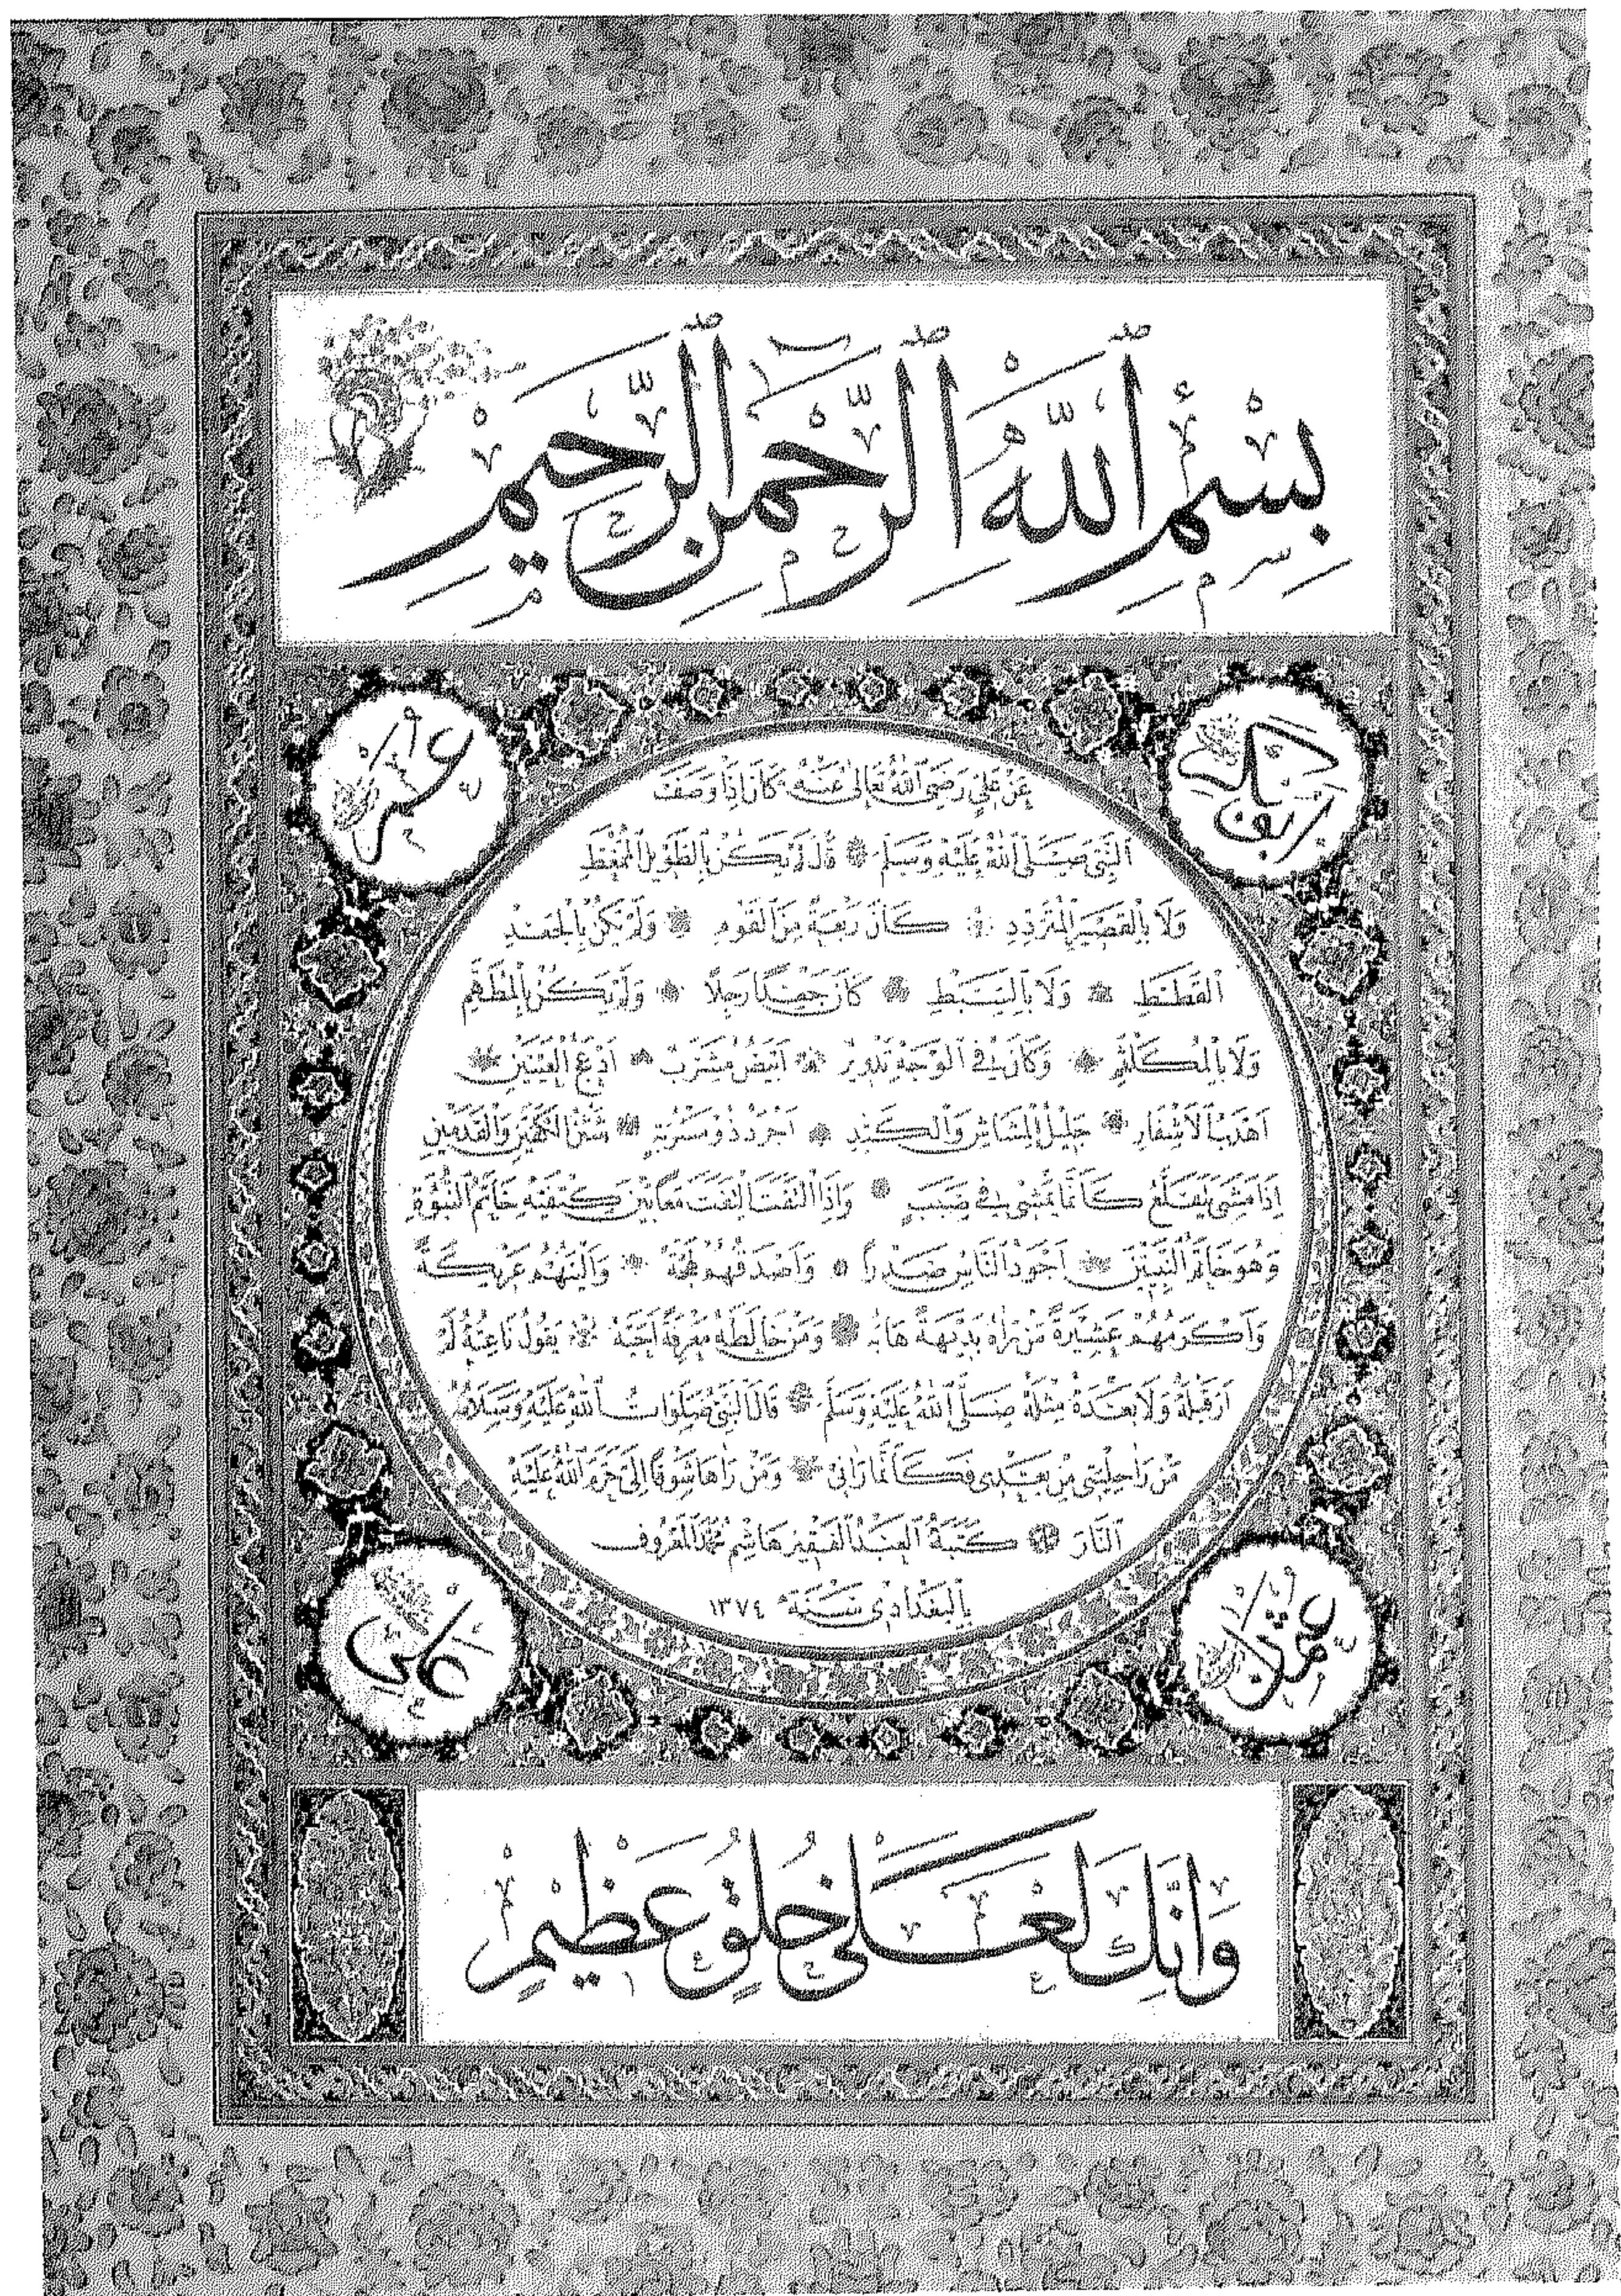 بِسْمِ ٱللهِ ٱلرَّحْمٰنِ ٱلرَّحِيمِ
ابوبكر
عمر
عن علي رضي الله تعالى عنه كان اذا وصف
النبي صلى الله عليه وسلم قال لم يكن بالطويل الممغط
ولا بالقصير المتردد كان ربعة من القوم ولم يكن بالجعد
القطط ولا بالسبط كان جعدا رجلا ولم يكن بالمطهم
ولا بالمكلثم وكان في الوجه تدوير ابيض مشرب ادعج العينين
اهدب الاشفار جليل المشاش والكتد اجرد ذو مسربة شثن الكفين والقدمين
اذا مشى يتقلع كأنما يمشي في صبب واذا التفت التفت معا بين كتفيه خاتم النبوة
وهو خاتم النبيين اجود الناس صدرا واصدقهم لهجة والينهم عريكة
واكرمهم عشيرة من رآه بديهة هابه ومن خالطه معرفة احبه يقول ناعته لم
ار قبله ولا بعده مثله صلى الله عليه وسلم قال النبي صلوات الله عليه وسلامه
من رآ حليتي من بعدي فكأنما رآني ومن رآها شوقا الي حرم الله عليه
النار كتبه العبد الفقير هاشم محمد المعروف
بالبغدادي سنة ١٣٧٤
عثمن
علي
وَاِنَّكَ لَعَلٰى خُلُقٍ عَظِيمٍ